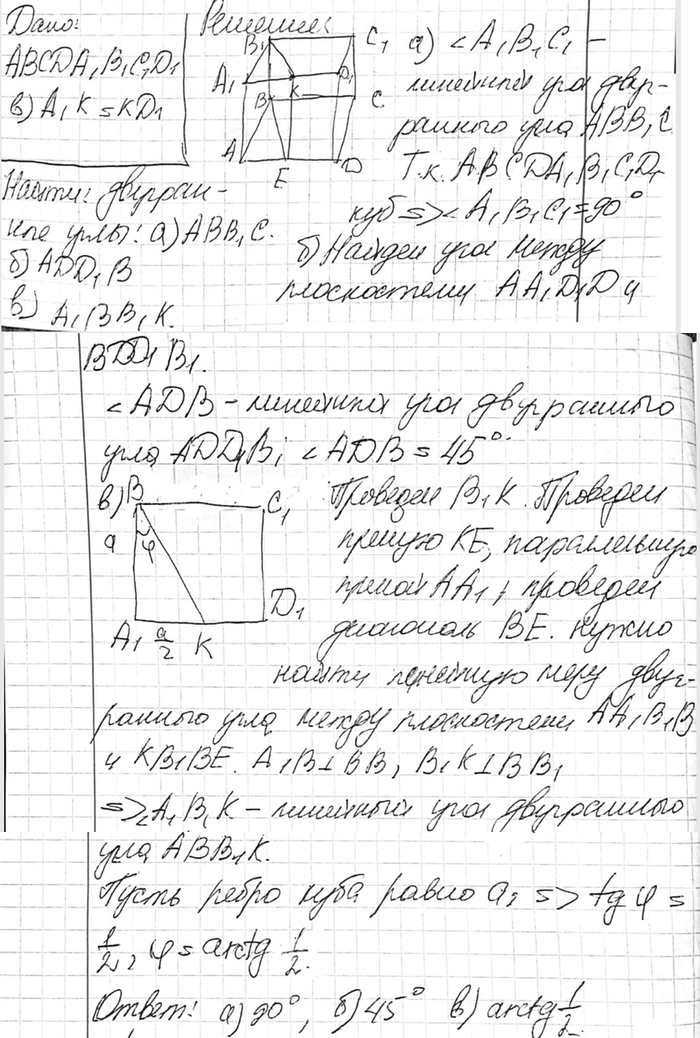 Дано:
ABCDA₁B₁C₁D₁
в) A₁K = KD₁
Найти: двугран-
ные углы: а) ABB₁C.
б) ADD₁B
в) A₁BB₁K.
Решение:
B₁
C₁
A₁
K
D₁
B
C
A
E
D
а) ∠A₁B₁C₁ –
линейный угол двуг-
ранного угла ABB₁C
Т.к. ABCDA₁B₁C₁D₁
куб => ∠A₁B₁C₁ = 90°
б) Найдем угол между
плоскостями AA₁D₁D и
BDD₁B₁.
∠ADB – линейный угол двугранного
угла ADD₁B; ∠ADB = 45°.
в) B
C₁
a
φ
A₁
a/2
K
D₁
Проведем B₁K. Проведем
прямую KE, параллельную
прямой AA₁, проведем
диагональ BE. Нужно
найти линейную меру двуг-
ранного угла между плоскостями AA₁B₁B
и KB₁BE. A₁B⊥BB₁ B₁K⊥BB₁
=> ∠A₁B₁K – линейный угол двугранного
угла ABB₁K.
Пусть ребро куба равно a, => tg φ =
1/2, φ = arctg 1/2.
Ответ: а) 90°, б) 45° в) arctg 1/2.